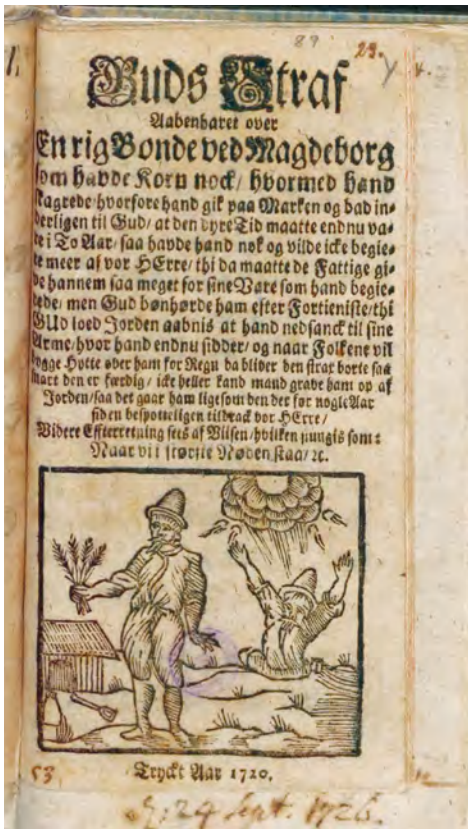 89 23.
Guds Straf
Aabenbaret over
En rig Bonde ved Magdeborg
som havde Korn nock/ hvormed hand
agrede/hvorfore hand gik paa Marken og bad in-
derligen til Gud/ at den dyre Tid maatte endnu va-
re i To Aar/ saa havde hand nok og vilde icke begie-
re meer af vor HErre/ thi da maatte de Fattige gi-
ve hannem saa meget for sine Vare som hand begie-
rede/ men Gud bønhørde ham efter Fortieniste/thi
GUd loed Jorden aabnis at hand nedsanck til sine
Arme/hvor hand endnu sidder/ og naar Folkene vil
bygge Hytte over ham for Regn da bliver den strax borte saa
snart den er færdig/ icke heller kand mand grave ham op af
Jorden/saa det gaar ham ligesom den der for nogle Aar
siden bespotteligen tiltrack vor HErre/
Videre Effterretning sees af Viisen/hvilken siungis som:
Naar vi i største Nøden staa/ ꝛc.
53
Tryckt Aar 1720.
24 Sept. 1726.